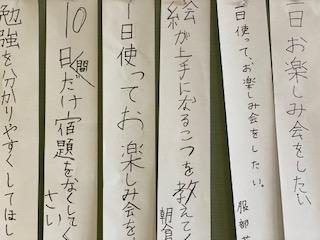 日お楽しみ会をしたい
日使って、お楽しみ会をしたい。
服部
絵が上手になるこつを教えてく
朝倉
1日使ってお楽しみ会を
10日間だけ宿題をなくしてく
さい
勉強を分かりやすくしてほし